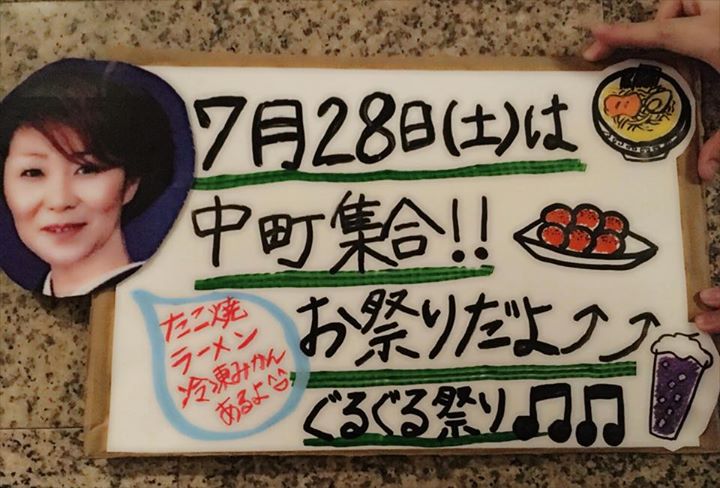 7月28日(土)は
中町集合!!
お祭りだよ⤴⤴
ぐるぐる祭り♫♫
たこ焼
ラーメン
冷凍みかん
あるよ☺